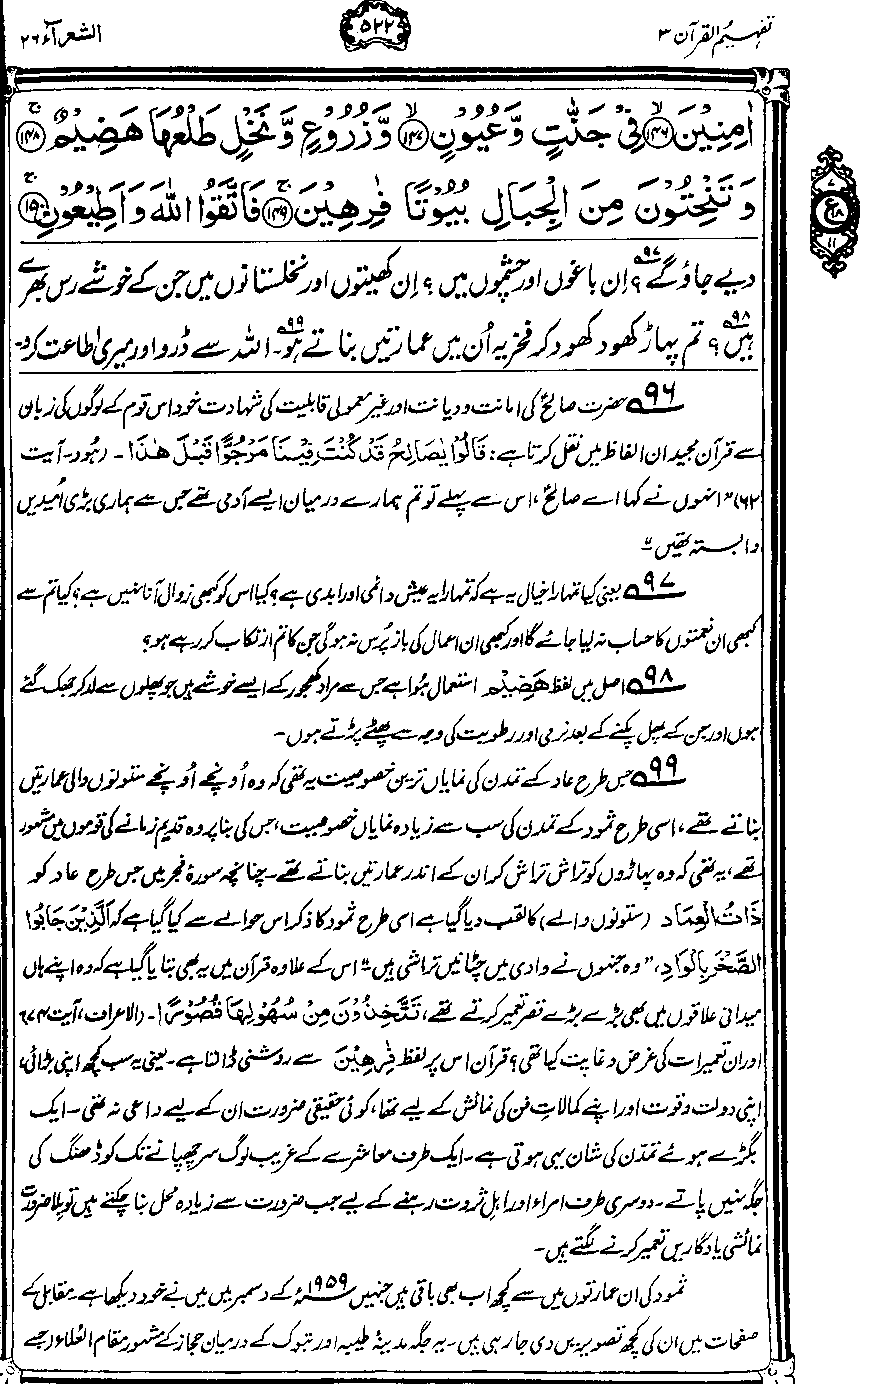 تفہیم القرآن ۳
۵۲۲
الشعرآء ۲۶
اٰمِنِيْنَ ﴿۱۴۶﴾ فِيْ جَنّٰتٍ وَّعُيُوْنٍ ﴿۱۴۷﴾ وَّزُرُوْعٍ وَّنَخْلٍ طَلْعُهَا هَضِيْمٌ ﴿۱۴۸﴾
وَتَنْحِتُوْنَ مِنَ الْجِبَالِ بُيُوْتًا فٰرِهِيْنَ ﴿۱۴۹﴾ فَاتَّقُوا اللّٰهَ وَاَطِيْعُوْنِ ﴿۱۵۰﴾
دیے جاؤ گے؟ اِن باغوں اور چشموں میں؟ اِن کھیتوں اور نخلستانوں میں جن کے خوشے رس بھرے
ہیں؟ تم پہاڑ کھود کھود کر فخریہ اُن میں عمارتیں بناتے ہو۔ اللہ سے ڈرو اور میری اطاعت کرو۔
۹۶ حضرت صالحؑ کی امانت و دیانت اور غیر معمولی قابلیت کی شہادت خود اس قوم کے لوگوں کی زبان
سے قرآن مجید ان الفاظ میں نقل کرتا ہے: قَالُوْا يٰصٰلِحُ قَدْ كُنْتَ فِيْنَا مَرْجُوًّا قَبْلَ هٰذَا۔ (ہود۔ آیت
۶۲) "انہوں نے کہا اے صالحؑ، اس سے پہلے تو تم ہمارے درمیان ایسے آدمی تھے جس سے ہماری بڑی اُمیدیں
وابستہ تھیں"۔
۹۷ یعنی کیا تمہارا خیال یہ ہے کہ تمہارا یہ عیش دائمی اور ابدی ہے؟ کیا اس کو کبھی زوال آنا نہیں ہے؟ کیا تم سے
کبھی ان نعمتوں کا حساب نہ لیا جائے گا اور کبھی ان اعمال کی باز پُرس نہ ہوگی جن کا تم ارتکاب کر رہے ہو؟
۹۸ اصل میں لفظ هَضِيْم استعمال ہوا ہے جس سے مراد کھجور کے ایسے خوشے ہیں جو پھلوں سے لد کر جھک گئے
ہوں اور جن کے پھل پکنے کے بعد نرمی اور رطوبت کی وجہ سے پھٹے پڑتے ہوں۔
۹۹ جس طرح عاد کے تمدن کی نمایاں ترین خصوصیت یہ تھی کہ وہ اُونچے اُونچے ستونوں والی عمارتیں
بناتے تھے، اسی طرح ثمود کے تمدن کی سب سے زیادہ نمایاں خصوصیت، جس کی بنا پر وہ قدیم زمانے کی قوموں میں مشہور
تھے، یہ تھی کہ وہ پہاڑوں کو تراش تراش کر ان کے اندر عمارتیں بناتے تھے۔ چنانچہ سورۂ فجر میں جس طرح عاد کو
ذَاتُ الْعِمَاد (ستونوں والے) کا لقب دیا گیا ہے اسی طرح ثمود کا ذکر اس حوالے سے کیا گیا ہے کہ اَلَّذِيْنَ جَابُوا
الصَّخْرَ بِالْوَادِ، "وہ جنہوں نے وادی میں چٹانیں تراشی ہیں"۔ اس کے علاوہ قرآن میں یہ بھی بتایا گیا ہے کہ وہ اپنے ہاں
میدانی علاقوں میں بھی بڑے بڑے قصر تعمیر کرتے تھے، تَتَّخِذُوْنَ مِنْ سُهُوْلِهَا قُصُوْرًا۔ (الاعراف، آیت ۷۴)
اور ان تعمیرات کی غرض و غایت کیا تھی؟ قرآن اس پر لفظ فٰرِهِيْنَ سے روشنی ڈالتا ہے۔ یعنی یہ سب کچھ اپنی بڑائی،
اپنی دولت و قوت اور اپنے کمالاتِ فن کی نمائش کے لیے تھا، کوئی حقیقی ضرورت ان کے لیے داعی نہ تھی۔ ایک
بگڑے ہوئے تمدن کی شان یہی ہوتی ہے۔ ایک طرف معاشرے کے غریب لوگ سر چھپانے تک کو ڈھنگ کی
جگہ نہیں پاتے۔ دوسری طرف امراء اور اہلِ ثروت رہنے کے لیے جب ضرورت سے زیادہ محل بنا چکتے ہیں تو بلا ضرورت
نمائشی یادگاریں تعمیر کرنے لگتے ہیں۔
ثمود کی ان عمارتوں میں سے کچھ اب بھی باقی ہیں جنہیں ۱۹۵۹ء کے دسمبر میں میں نے خود دیکھا ہے۔ مقابل کے
صفحات میں ان کی کچھ تصویریں دی جا رہی ہیں۔ یہ جگہ مدینۂ طیبہ اور تبوک کے درمیان حجاز کے مشہور مقام العُلاء (جسے